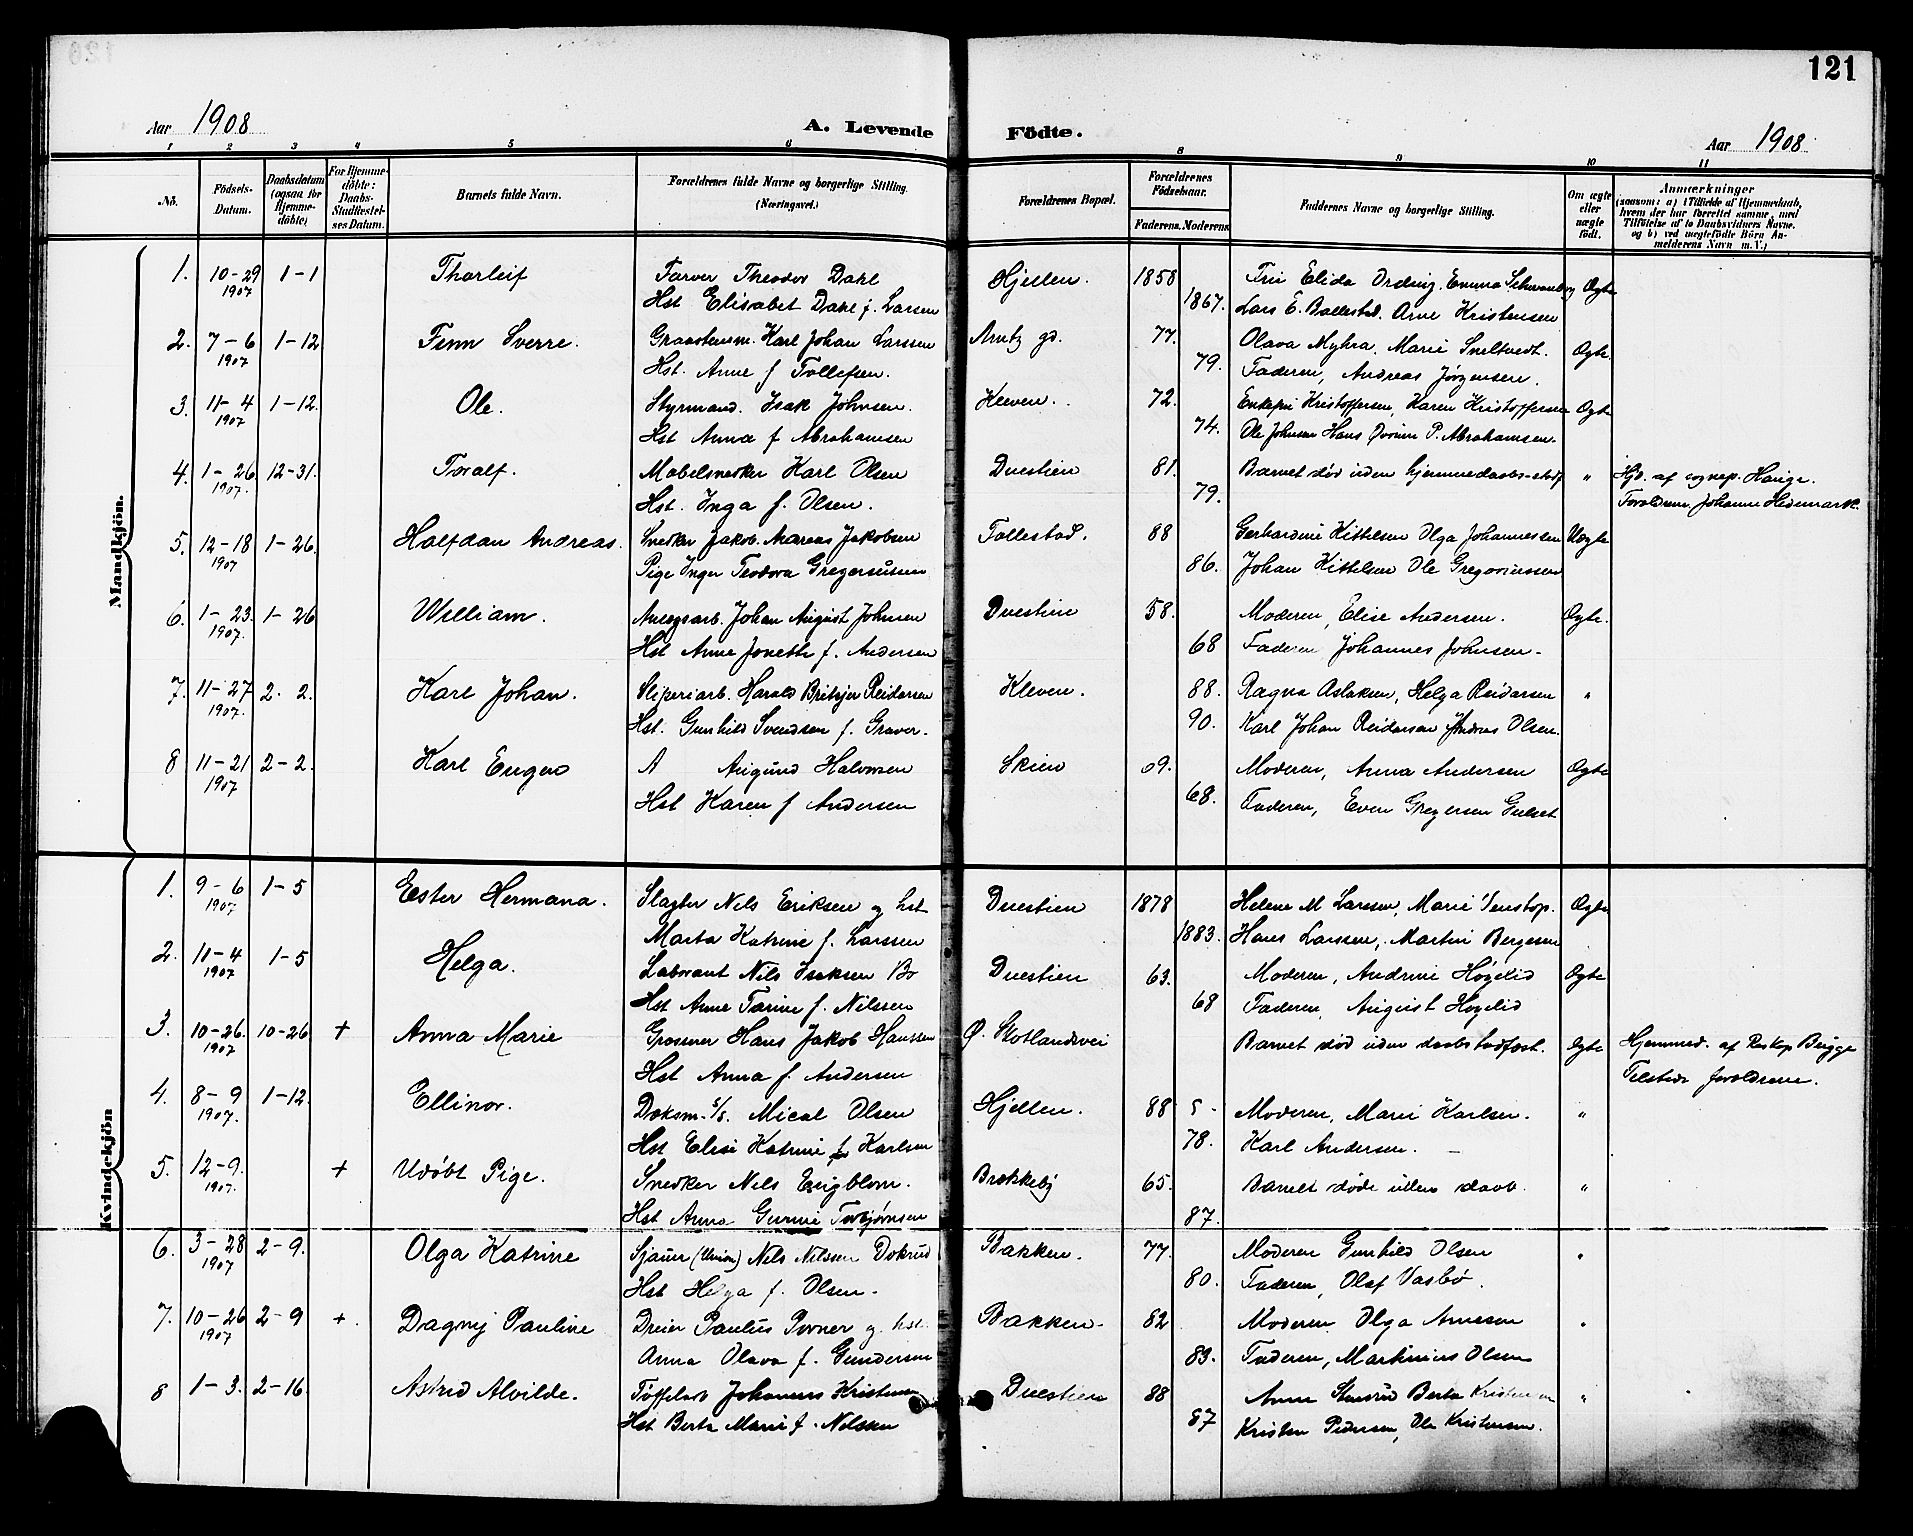 121
Aar 1908
A. Levende
Födte.
Aar 1908
1 2 3 4 5 6 8 9 10 11
No.
Födsels-Datum.
Daabsdatum (ogsaa for Hjemme-döbte).
For Hjemme-döbte: Daabs-Stadfæstel-ses Datum.
Barnets fulde Navn.
Forældrenes fulde Navne og borgerlige Stilling. (Næringsvei.)
Forældrenes Bopæl.
Forældrenes Födselsaar.
Faderens. Moderens
Faddernes Navne og borgerlige Stilling.
Om ægte eller uægte födt.
Anmærkninger (saasom: a) i Tilfælde af Hjemmedaab, hvem der har forrettet samme, med Tilföielse af to Daabsvidners Navne, og b) ved uægtefödte Börn An-melderens Navn m.V.)
Mandkjön.
1. 10-29 1-1 Thorleif Farver Theodor Dahl Hjellen. 1858 Frü Elida Ording, Emma Ægte
1907 Hst Elisabet Dahl f. Larsen 1867. Lars E. Ballestad. Arne Kristensen
2. 7-6 1-12 Finn Sverre. Karl Johan Larssen gd. 77. Olava Myhra. Marie Sneltvedt. Ægte
1907 Hst. Anne f Tollefsen. 79. Faderen, Andreas Jörgensen.
3. 11-4 1-12. Ole. Styrmand. Isak Johnsen. Kleven. 72. Enkefru Kristoffersen, Karen Kristoffersen Ægte
1907 Hst Anna f Abrahamsen 74. Ole Johnsen Hans P. Abrahamsen.
4. 1-26. 12-31. Toralf. Møbelsnedker Karl Olsen Duestien 81. Barnet død uden hjemmedaabs-stadf " Hjd. af sognep. Hauge.
1907. Hst. Inga f. Olsen. 79. Forældrene. Johanne Hedemark.
5. 12-18 1-26. Halfdan Andreas. Snedker Jakob Andreas Jakobsen Follestad. 88 Gerhardine Kittelsen Olga Johannessen Uægte
1907 Pige Inger Teodora Gregersen 86. Johan Kittelsen Ole Gregoriussen
6. 1-23. 1-26 William. Anlægsarb. Johan August Johnsen Duestien 58. Moderen, Elise Andersen. Ægte.
1907. Hst Anne Jonette f. Andersen 68 Faderen Johannes Johnsen.
7. 11-27 2. 2. Karl Johan. Sliperiarb. Harald Reidarsen Kleven. 88. Ragna Aslaksen, Helga Reidarsen "
1907. Hst. Gunhild Svendsen f. Graver. 90. Karl Johan Reidarsen Andreas Olsen.
8 11-21 2-2. Karl Eugen A August Halvorsen Skien 09. Moderen, Anna Andersen Ægte
1907 Hst Karen f Andersen 68. Faderen, Even Gregersen Gulset
Kvindekjön
1. 9-6 1-5 Ester Hermana. Slagter Nils Eriksen og hst Duestien 1878 Helene M Larssen, Marie Venstøp. Ægte
1907 Marta Katrine f. Larssen 1883. Hans Larssen, Martin Bergesen
2. 11-4 1-5 Helga. Laborant Nils Isaksen Bø Duestien 63. Moderen, Andrine Høgelid Ægte
1907 Hst Anne Tarine f. Nilssen 68 Faderen, August Høgelid
3. 10-26. 10-26 + Anna Marie Grosserer Hans Jakob Hanssen Ø. Skotlandsvei Barnet død uden daabsstadfæst. Ægte Hjemmed. af Reskap Bugge
1907 Hst Anna f. Andersen Tilstede forældrene.
4. 8-9 1-12. Ellinor. Doksm. s/s. Mical Olsen Hjellen. 88 5- Moderen, Marie Karlsen. "
1907. Hst Elise Katrine f Karlsen 78. Karl Andersen. -
5. 12-9. + Udöbt Pige. Snedker Nils Engblom. Brekkeby 65. Barnet døde uden daab. "
1907. Hst Anna Gurine Torbjørnsen 87.
6. 3-28 2-9. Olga Katrine Sjauer (Union) Nils Nilssen Dokrud Bakken. 77. Moderen Gunhild Olsen "
1907 Hst Helga f. Olsen. 80. Faderen, Olaf Vasbø.
7. 10-26 2-9 +. Dagny Pauline Dreier Paulus Porner og hst. Bakken. 82 Moderen Olga Arnesen "
1907 Anna Olava f. Gundersen 83. Faderen, Martinius Olsen
8 1-3. 2-16. Astrid Alvilde. Johannes Kristensen Duestien 88 Anne Stensrud Berta Kristensen "
Hst Berta Marie f. Nilsken 87 Kristen Pedersen, Ole Kristensen.